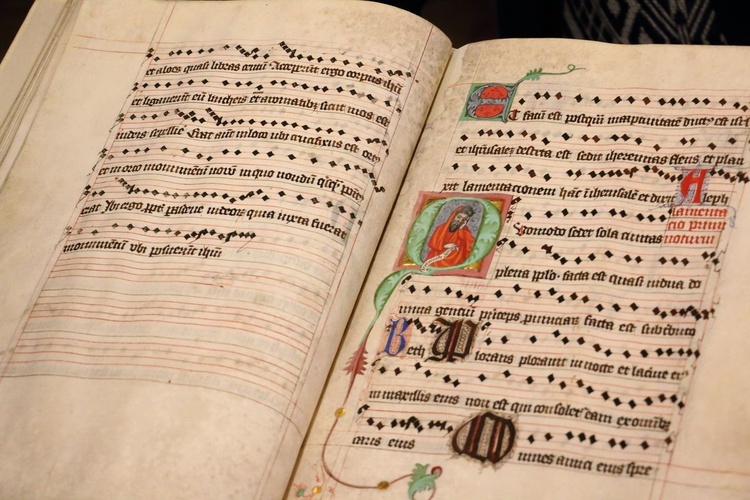 et aloes quasi libras centū Acceperūt ergo corpus ihū
et ligauerūt eū lintheis et aromatibȝ sicut mos est
iudeis sepelire Erat autē in loco ubi crucifixus est ort
et in orto monumentū nouū in quo nondū
erat Ibi ergo ppt̄ parasceue iudeor quia iuxta fuerat
monumentū ubi posuerūt ihm
Et factū est postquā in captiuitatē duct est isrl
et iherusalē deserta est sedit iheremias flens et plan
xit lamentacionem hāc ī iherusalē et dixit Aleph
lamenta
cio prima
Quomodo sedet sola ciuitas
nocturni
plena pplo facta est quasi uidua do
mina genciū princeps prouinciarȝ facta est sub tributo
Beth Plorans plorauit in nocte et lacrime eiꝰ
in maxillis eius non est qui consoletꝰ eam ex omnibȝ
caris eius Omnes amici eius spre